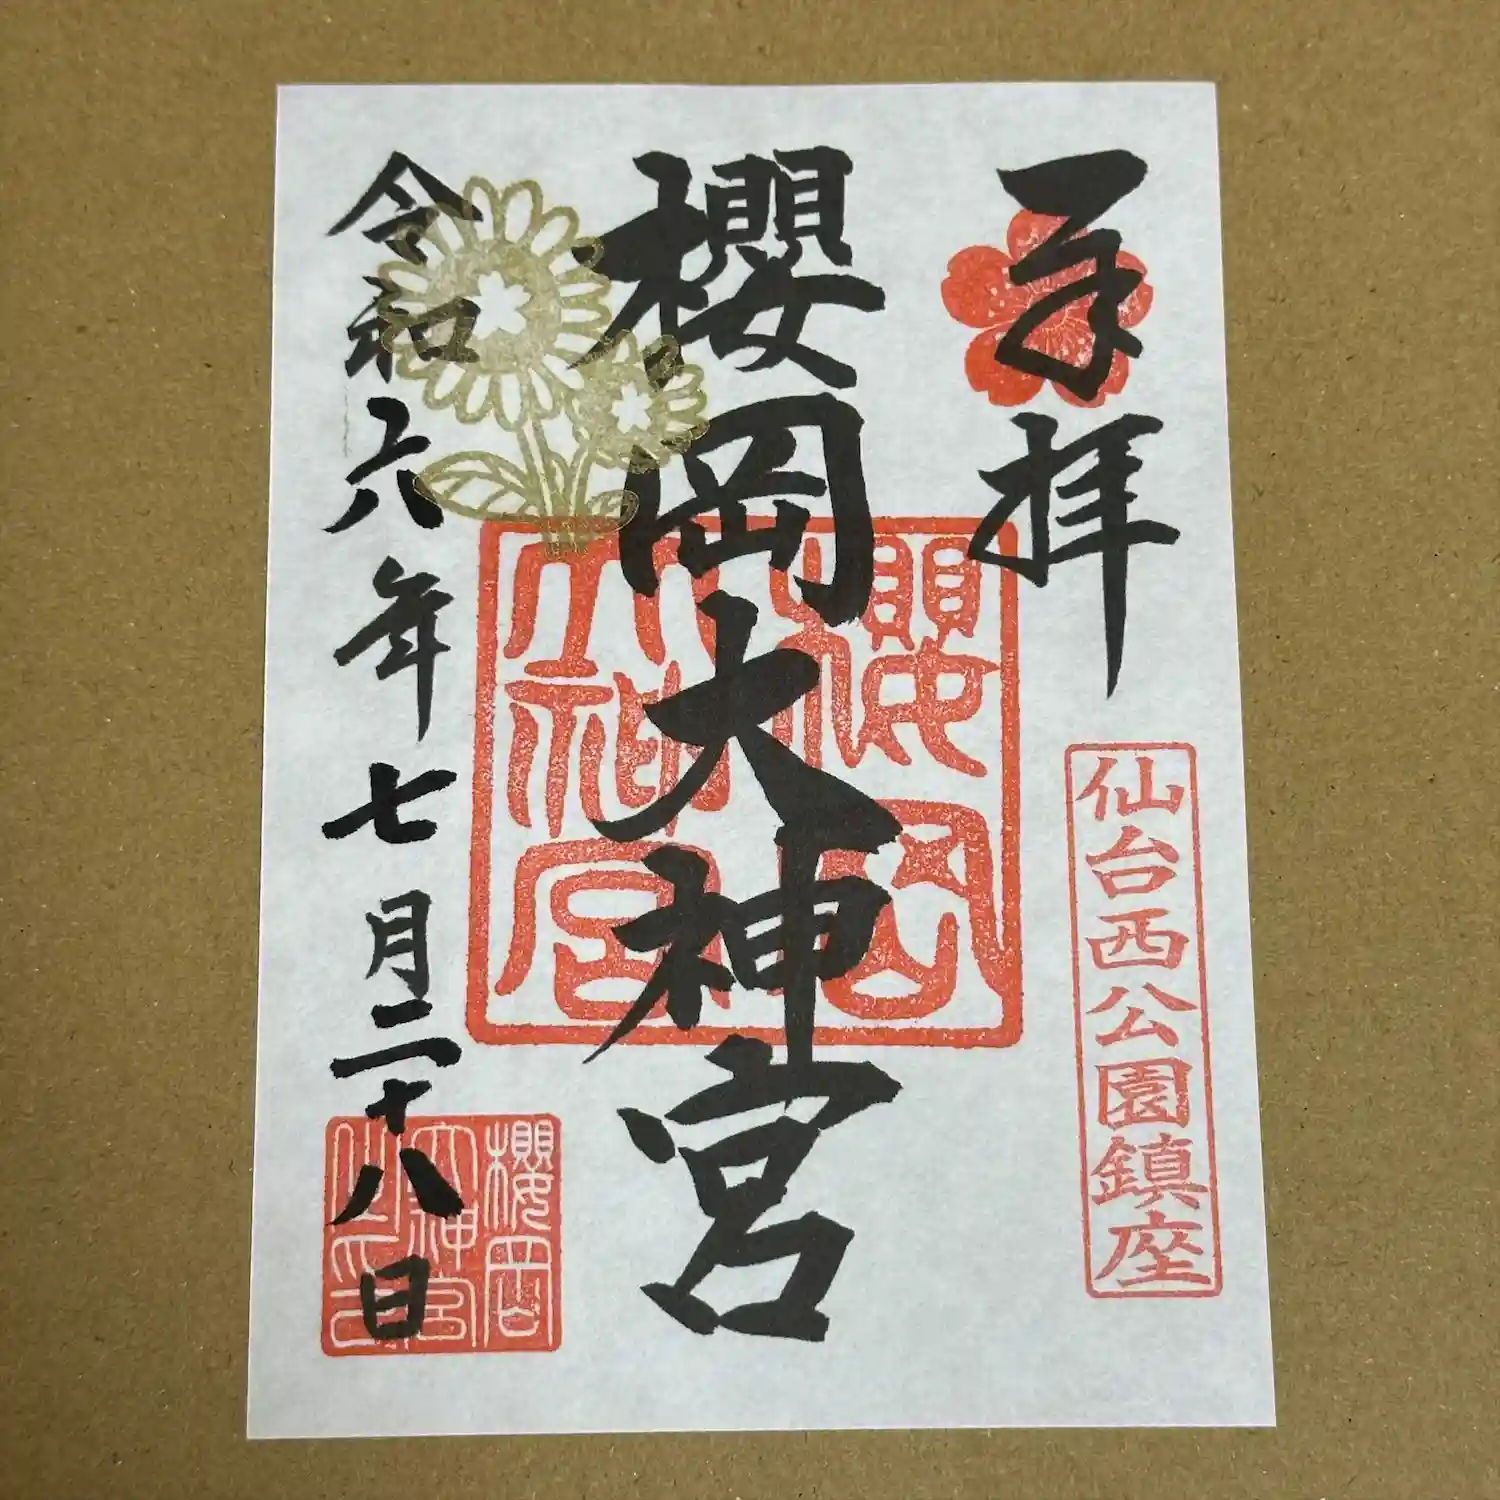 奉拝
仙台西公園鎮座
櫻岡大神宮
櫻岡
大神宮
令和六年七月二十八日
櫻岡
大神宮